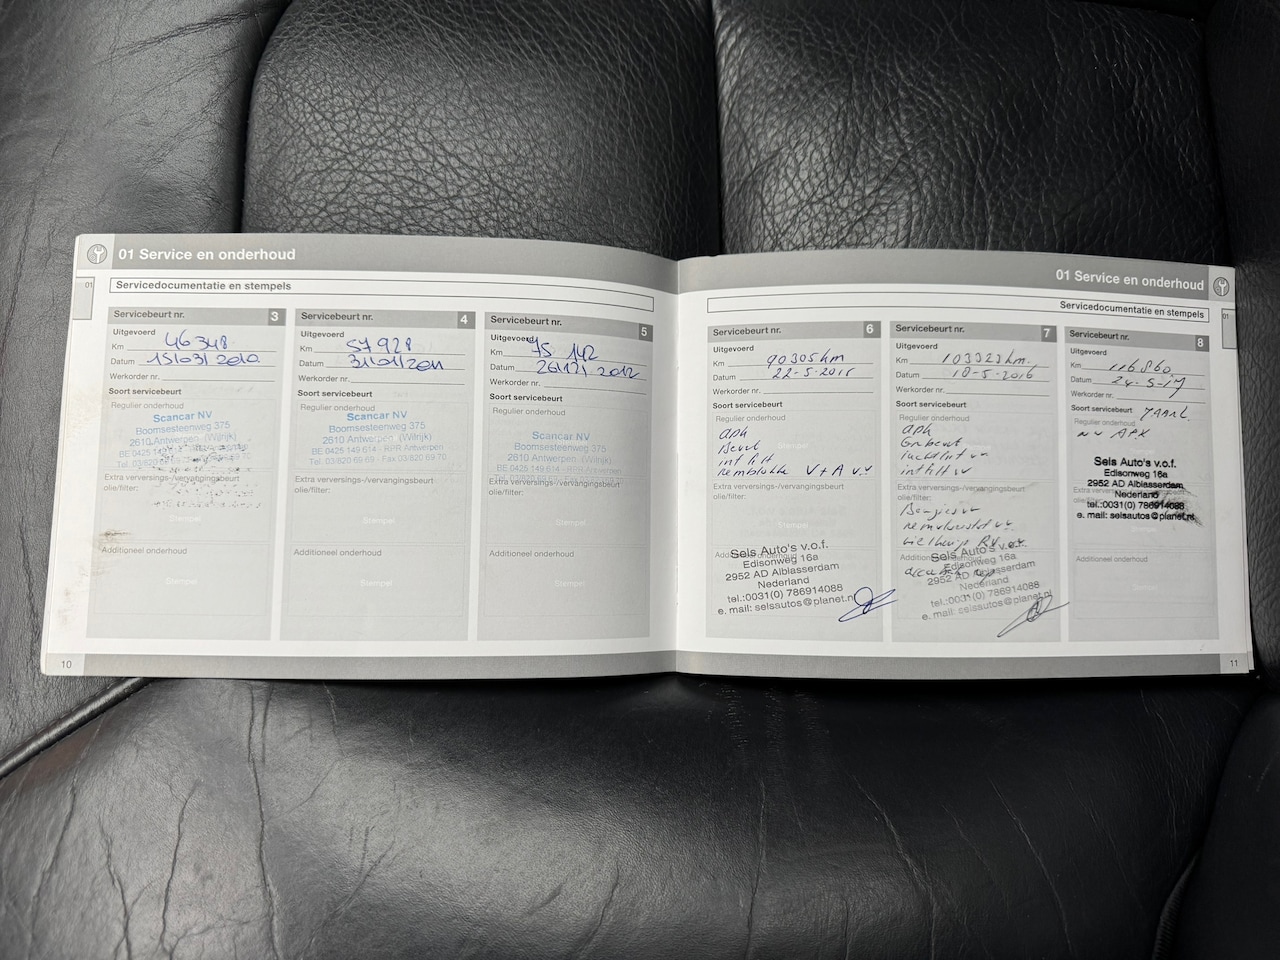 01 Service en onderhoud
01
Servicedocumentatie en stempels
Servicebeurt nr. 3
Uitgevoerd
Km 46 348
Datum 15/03/2010
Werkorder nr.
Soort servicebeurt
Regulier onderhoud
Scancar NV
Boomsesteenweg 375
2610 Antwerpen (Wilrijk)
BE 0425 149 614
Tel. 03/820
Extra verversings-/vervangingsbeurt
olie/filter:
Stempel
Additioneel onderhoud
Stempel
Servicebeurt nr. 4
Uitgevoerd
Km 57 928
Datum 31/01/2011
Werkorder nr.
Soort servicebeurt
Regulier onderhoud
Scancar NV
Boomsesteenweg 375
2610 Antwerpen (Wilrijk)
BE 0425 149 614 - RPR Antwerpen
Tel. 03/820 69 69 - Fax 03/820 69 70
Extra verversings-/vervangingsbeurt
olie/filter:
Stempel
Additioneel onderhoud
Stempel
Servicebeurt nr. 5
Uitgevoerd
Km 75 142
Datum 2012
Werkorder nr.
Soort servicebeurt
Regulier onderhoud
Scancar NV
Boomsesteenweg 375
2610 Antwerpen (Wilrijk)
BE 0425 149 614 - RPR Antwerpen
Extra verversings-/vervangingsbeurt
olie/filter:
Stempel
Additioneel onderhoud
Stempel
10
01 Service en onderhoud
01
Servicedocumentatie en stempels
Servicebeurt nr. 6
Uitgevoerd
Km 90305 km
Datum 22-5-2015
Werkorder nr.
Soort servicebeurt
Regulier onderhoud
apk
Beurt
int filt
remblokke V+A vv
Extra verversings-/vervangingsbeurt
olie/filter:
Stempel
Additioneel onderhoud
Sels Auto's v.o.f.
Edisonweg 16a
2952 AD Alblasserdam
Nederland
tel.:0031(0) 786914088
e. mail: selsautos@planet.nl
Servicebeurt nr. 7
Uitgevoerd
Km 103323 km
Datum 18-5-2016
Werkorder nr.
Soort servicebeurt
Regulier onderhoud
apk
Gr beurt
luchtfilt vv
int filt vv
Extra verversings-/vervangingsbeurt
olie/filter:
Bougies vv
remvloeistof vv
Additioneel
Sels Auto's v.o.f.
Edisonweg 16a
2952 AD Alblasserdam
Nederland
tel.:0031(0) 786914088
e. mail: selsautos@planet.nl
Servicebeurt nr. 8
Uitgevoerd
Km 116860
Datum 24-5-17
Werkorder nr.
Soort servicebeurt
Regulier onderhoud
Sels Auto's v.o.f.
Edisonweg 16a
2952 AD Alblasserdam
Nederland
tel.:0031(0) 786914088
e. mail: selsautos@planet.nl
Extra verversings-/vervangingsbeurt
olie/filter:
Additioneel onderhoud
Stempel
11